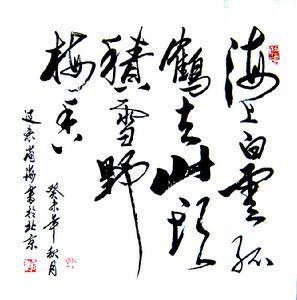 海上白雲孤
鶴去山頭
積雪野
梅香
癸未年秋月
邊東
書於北京